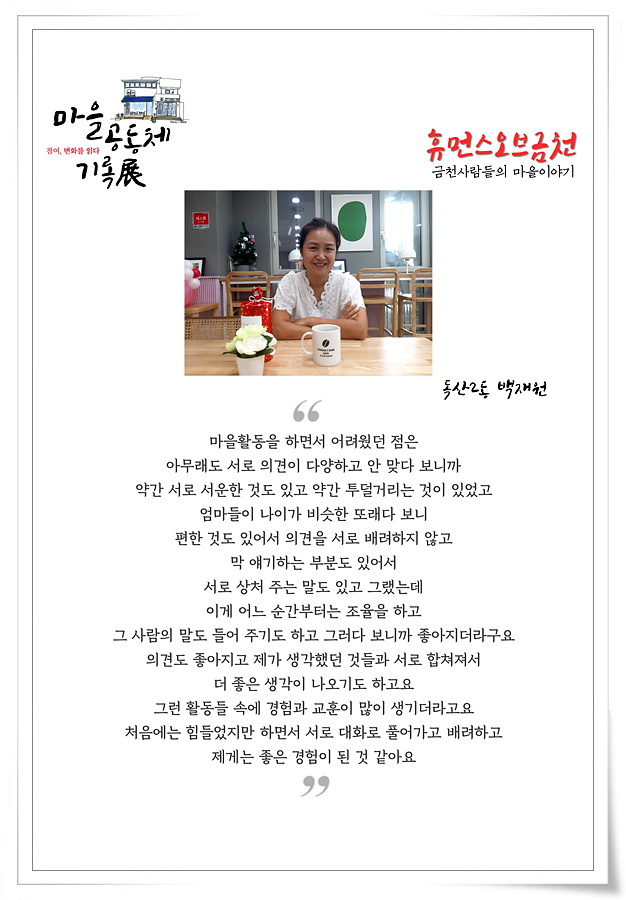 마을
공동체
참여, 변화를 읽다
기록展
휴먼스오브금천
금천사람들의 마을이야기
독산2동 백재원
“
마을활동을 하면서 어려웠던 점은
아무래도 서로 의견이 다양하고 안 맞다 보니까
약간 서로 서운한 것도 있고 약간 투덜거리는 것이 있었고
엄마들이 나이가 비슷한 또래다 보니
편한 것도 있어서 의견을 서로 배려하지 않고
막 얘기하는 부분도 있어서
서로 상처 주는 말도 있고 그랬는데
이게 어느 순간부터는 조율을 하고
그 사람의 말도 들어 주기도 하고 그러다 보니까 좋아지더라구요
의견도 좋아지고 제가 생각했던 것들과 서로 합쳐져서
더 좋은 생각이 나오기도 하고요
그런 활동들 속에 경험과 교훈이 많이 생기더라고요
처음에는 힘들었지만 하면서 서로 대화로 풀어가고 배려하고
제게는 좋은 경험이 된 것 같아요
”